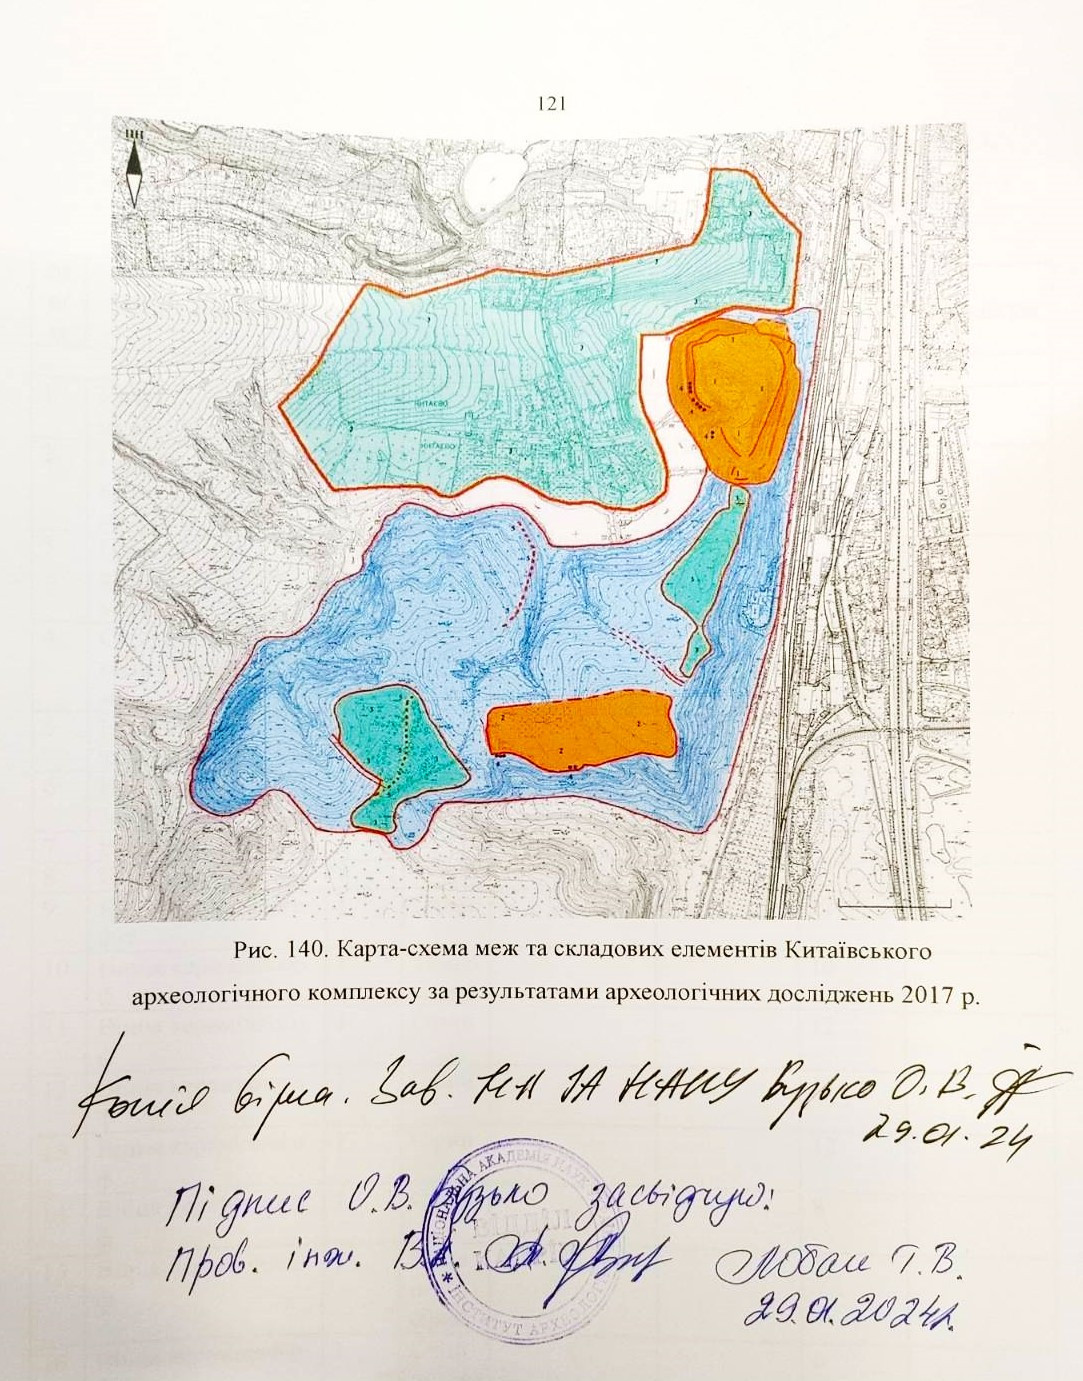 121
ПН
КИТАЕВО
КИТАЕВО
Рис. 140. Карта-схема меж та складових елементів Китаївського
археологічного комплексу за результатами археологічних досліджень 2017 р.
Копія вірна. Зав. НА ІА НАНУ Бузько О. В.
29.01.24
НАЦІОНАЛЬНА АКАДЕМІЯ НАУК
Підпис О.В. Бузько засвідчую:
ВІДДІЛ
Пров. інж. Лобань Т. В.
ІНСТИТУТ АРХЕОЛОГІЇ
29.01.2024р.